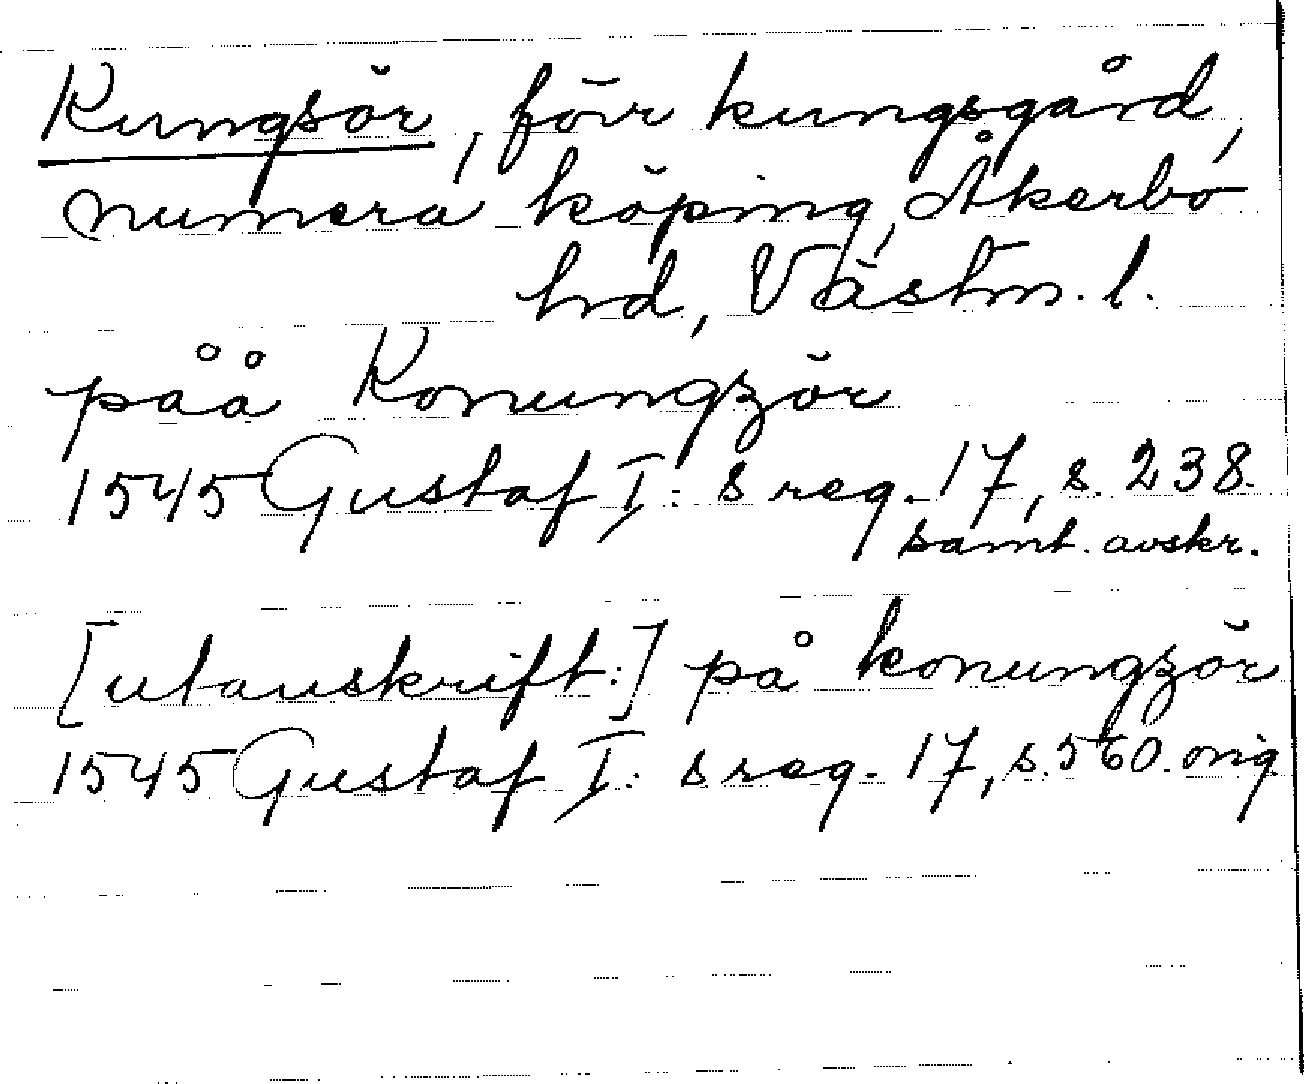 Kungsör, förr kungsgård,
numera köping, Åkerbo
hd, Västm. l.
påå Konungzör
1545 Gustaf I: s reg. 17, s. 238.
samt. avskr.
[utanskrift:] på konungzör
1545 Gustaf I: s reg. 17, s. 560. orig